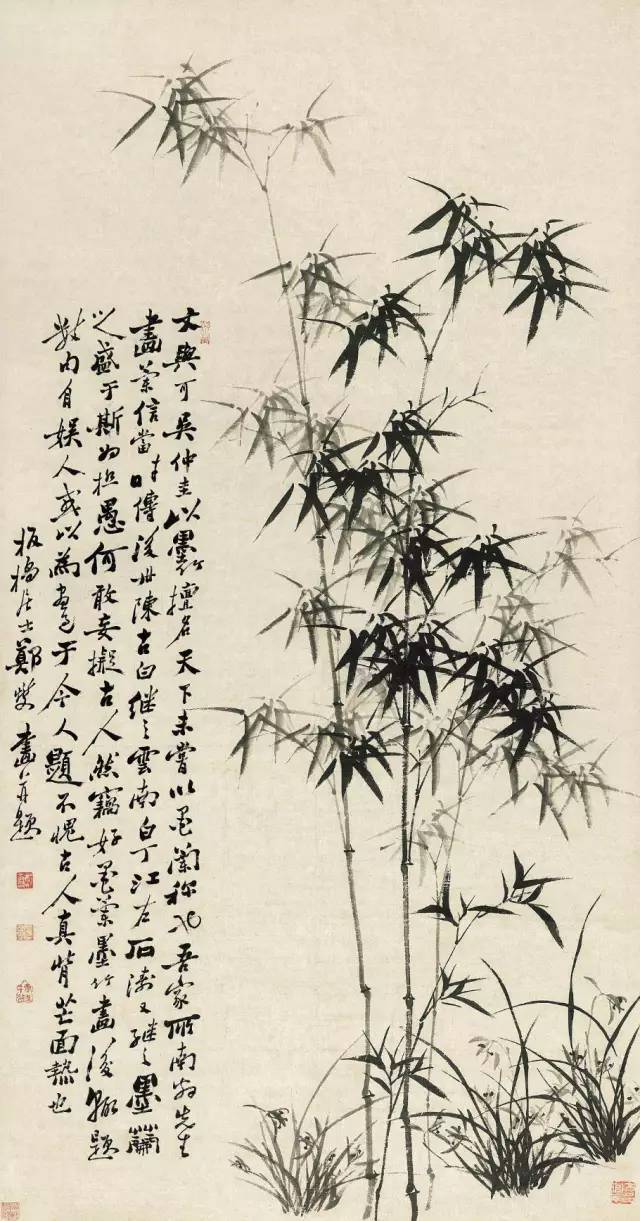 文與可吳仲圭以墨竹擅名天下未嘗以墨蘭稱也吾家所南翁先生
畫蘭信當時傳後世陳古白繼之雲南白丁江左石濤又繼之墨蘭
之盛于斯為極愚何敢妄擬古人然竊好墨蘭墨竹畫後輒題
數句自娛人或以為于今人題不愧古人真背芒面熱也
板橋居士鄭燮畫并題